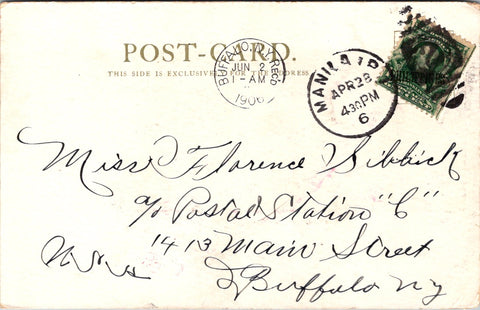 POST-CARD.
THIS SIDE IS EXCLUSIVELY FOR THE ADDRESS.
BUFFALO, N.Y. REC'D
JUN 2
1-AM
1906
MANILA P.I.
APR 28
4:30PM
6
Miss Florence Sibbick
c/o Postal Station "C"
1413 Main Street
Buffalo NY
U.S.A